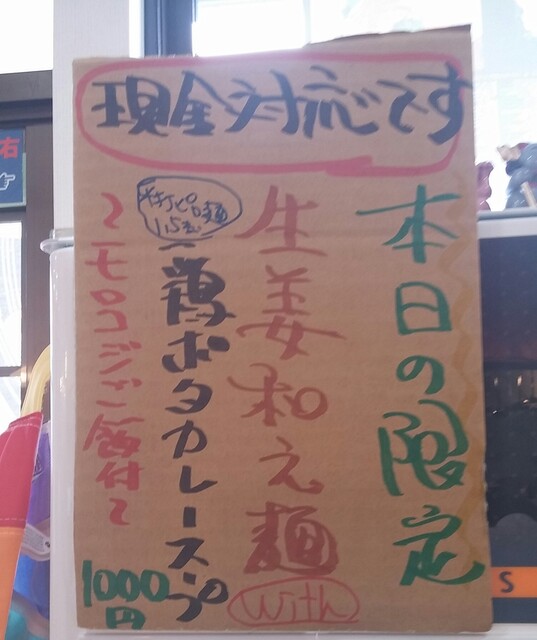 現金対応です
本日の限定
生姜和え麺
with
村ピロ麺
1.5玉
鶏ポタカレースープ
〜モロコシご飯付〜
1000
円
右
S